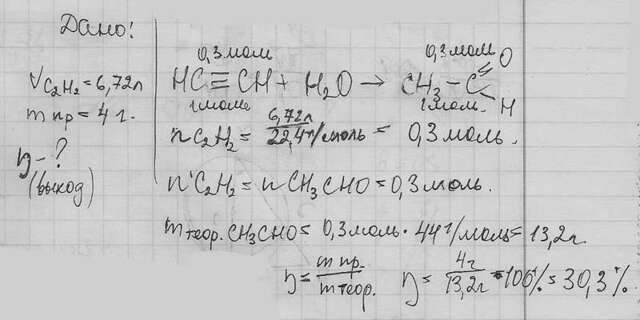 Дано:
V C₂H₂ = 6,72 л
m пр = 4 г.
η - ?
(выход)
0,3 моль 0,3 моль
HC≡CH + H₂O → CH₃ - C
O
H
1 моль 1 моль.
n C₂H₂ = 6,72 л / 22,4 л/моль = 0,3 моль.
n C₂H₂ = n CH₃CHO = 0,3 моль.
m теор. CH₃CHO = 0,3 моль · 44 г/моль = 13,2 г.
η = m пр. / m теор. η = 4 г / 13,2 г · 100% = 30,3 %.